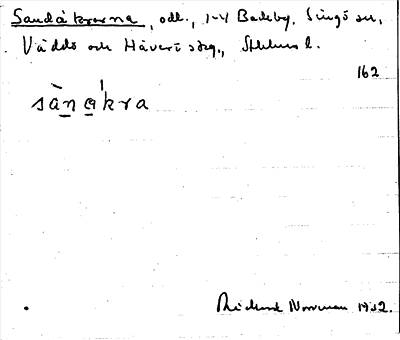 Sandåkrarna, odl., 1-4 Backby, Singö sn,
Väddö och Häverö skg., Sthlms l.
162
sànakra
Rickard Norrman 1932.